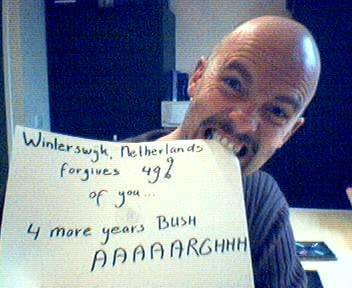 Winterswyk, Netherlands
forgives 49%
of you...
4 more years BUSH
AAAAARGHHH